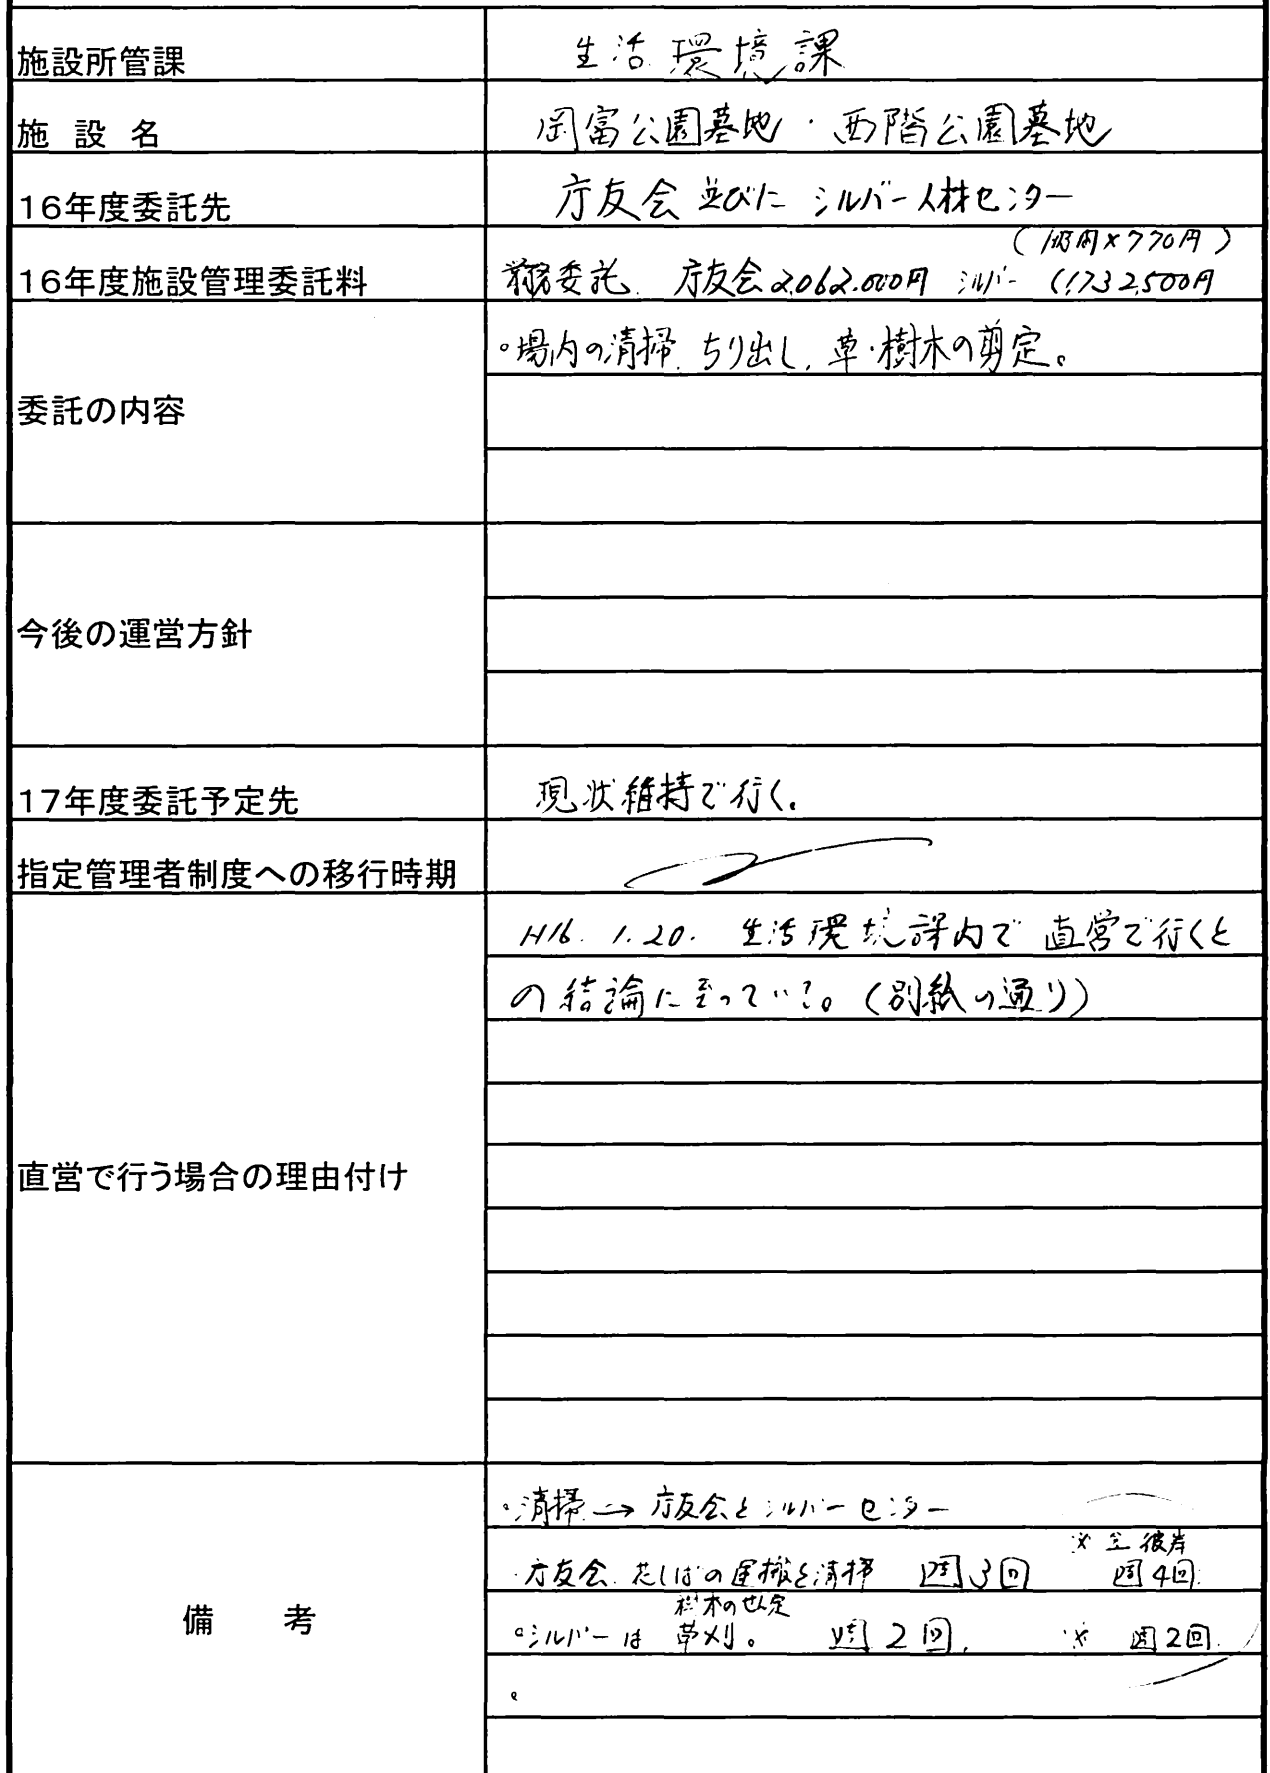 施設所管課
生活環境課
施 設 名
岡富公園墓地・西階公園墓地
16年度委託先
庁友会 並びに シルバー人材センター
16年度施設管理委託料
×770円)
委託 庁友会 2,062,000円 シルバー (1,732,500円
委託の内容
。場内の清掃、ちり出し、草・樹木の剪定。
今後の運営方針
17年度委託予定先
現状維持で行く。
指定管理者制度への移行時期
直営で行う場合の理由付け
H16. 1.20. 生活環境課内で 直営で行くと
の結論に至っている。(別紙の通り)
備 考
・清掃 → 庁友会とシルバーセンター
※ 彼岸
・庁友会 花しばの運搬と清掃 週3回 週4回
樹木のせん定
。シルバーは 草刈。 週2回. ※ 週2回.